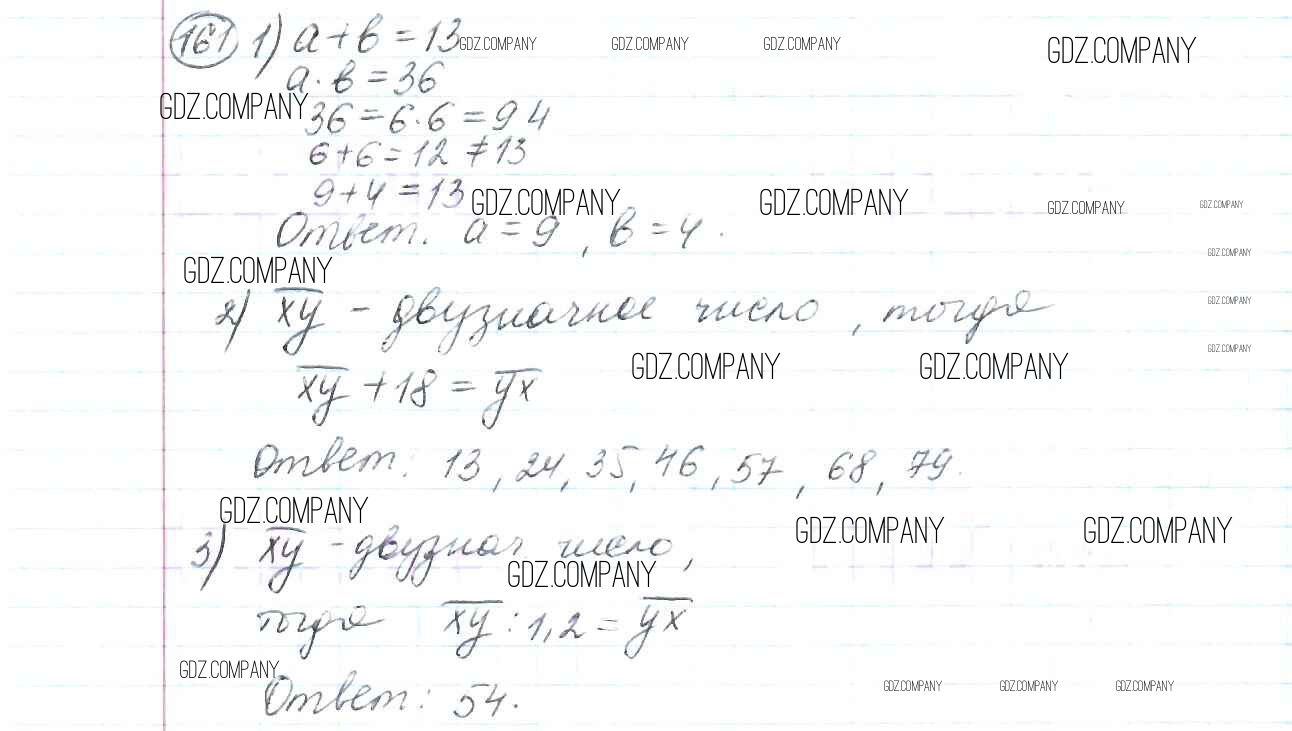 161 1) a + в = 13 GDZ.COMPANY GDZ.COMPANY GDZ.COMPANY GDZ.COMPANY
a · в = 36
GDZ.COMPANY
36 = 6 · 6 = 9 4
6 + 6 = 12 ≠ 13
9 + 4 = 13 GDZ.COMPANY GDZ.COMPANY GDZ.COMPANY GDZ.COMPANY
Ответ. a = 9 , в = 4 .
GDZ.COMPANY
GDZ.COMPANY
2) x̅y̅ - двузначное число , тогда
GDZ.COMPANY
GDZ.COMPANY
GDZ.COMPANY GDZ.COMPANY
x̅y̅ + 18 = y̅x̅
Ответ: 13 , 24, 35, 46 , 57 , 68 , 79.
GDZ.COMPANY
GDZ.COMPANY GDZ.COMPANY
3) x̅y̅ - двузнач. число ,
GDZ.COMPANY
тогда x̅y̅ : 1,2 = y̅x̅
GDZ.COMPANY
GDZ.COMPANY GDZ.COMPANY GDZ.COMPANY
Ответ: 54.